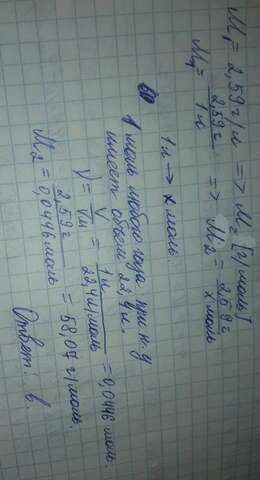 M₁ = 2,59 г/л => M₂ [г/моль]
M₁ = 2,59 г / 1 л => M₂ = 2,59 г / x моль
1 л → x моль.
1 моль любого газа при н.у
имеет объём 22,4 л.
V = V / Vм = 1 л / 22,4 л/моль = 0,0446 моль.
M₂ = 2,59 г / 0,0446 моль = 58,07 г/моль.
Ответ: В.